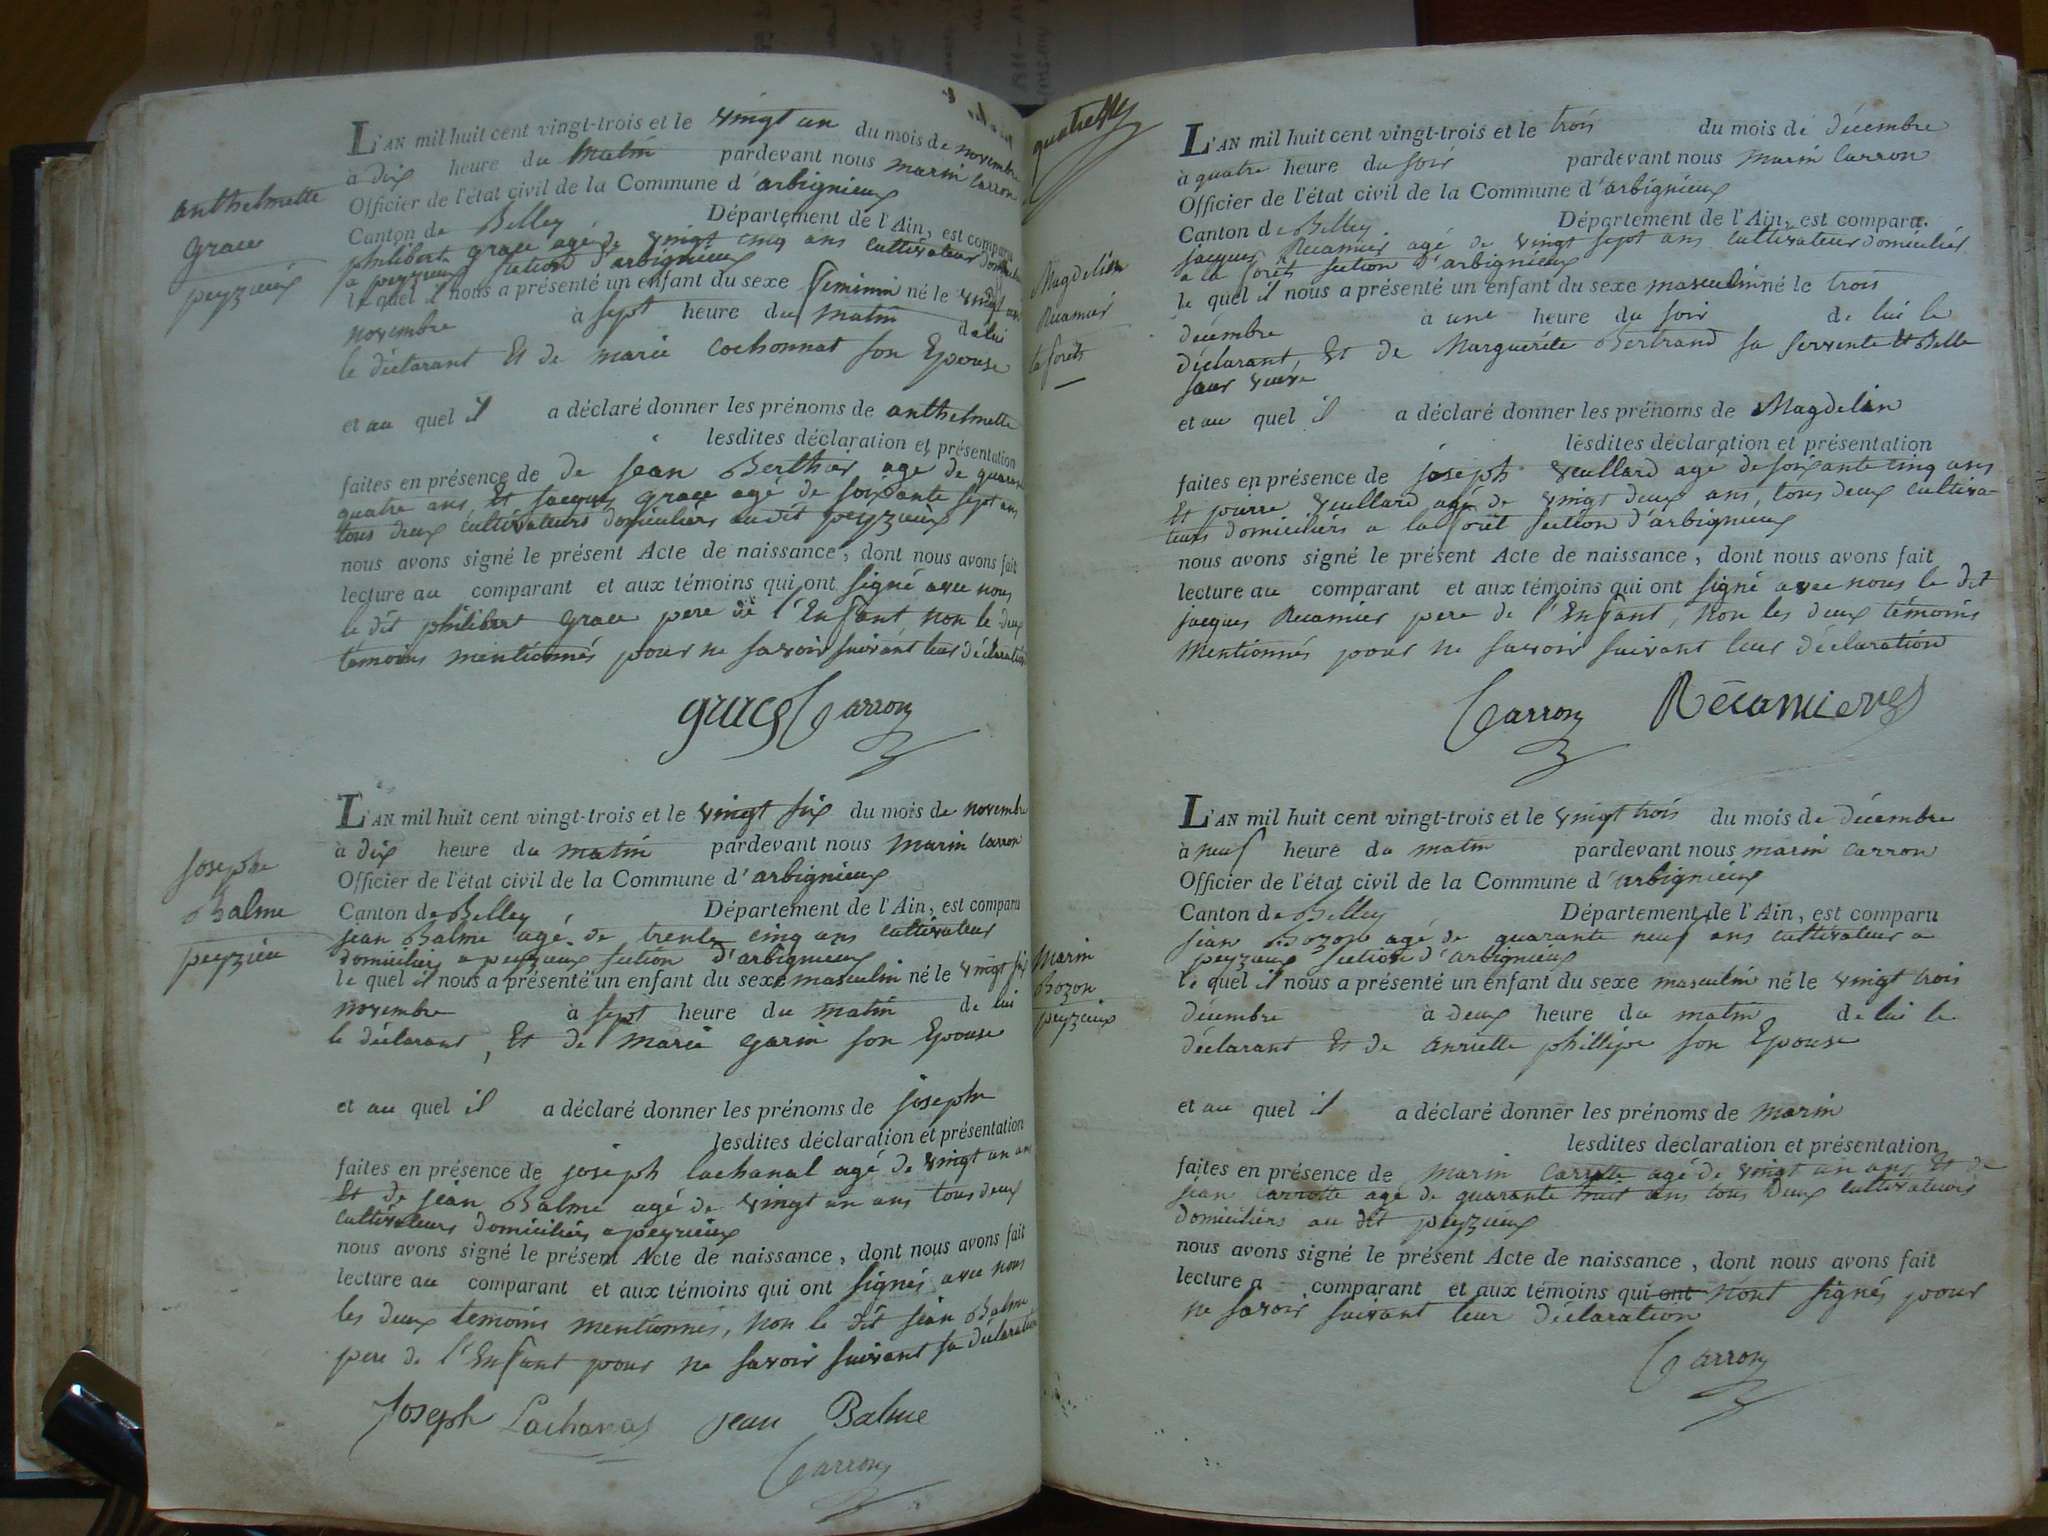 anthelmette
grace
peyzieux
L'AN mil huit cent vingt-trois et le vingt un du mois de novembre
à dix heure du matin pardevant nous marin Carron
Officier de l'état civil de la Commune d'arbignieux
Canton de Belley Département de l'Ain, est comparu
philibert grace agé de vingt cinq ans cultivateur
a peyzieux section d'arbignieux
le quel il nous a présenté un enfant du sexe feminin né le vingt un
novembre à sept heure du matin de lui
le déclarant Et de marie Cochonnat son Epouse
et au quel il a déclaré donner les prénoms de anthelmette
lesdites déclaration et présentation
faites en présence de de jean Berthier age de quarante
quatre ans, Et jacques grace agé de soixante sept ans
tous deux cultivateurs domiciliers audit peyzieux
nous avons signé le présent Acte de naissance, dont nous avons fait
lecture au comparant et aux témoins qui ont signé avec nous
le dit philibert grace pere de l'Enfant non le deux
temoins mentionnés pour ne savoir suivant leur déclaration
grace Carron
joseph
Balme
peyzieu
L'AN mil huit cent vingt-trois et le vingt six du mois de novembre
à dix heure du matin pardevant nous marin Carron
Officier de l'état civil de la Commune d'arbignieux
Canton de Belley Département de l'Ain, est comparu
jean Balme agé de trente cinq ans cultivateur
domicilier a peyzieux section d'arbignieux
le quel il nous a présenté un enfant du sexe masculin né le vingt six
novembre à sept heure du matin de lui
le déclarant, Et de marie garin son Epouse
et au quel il a déclaré donner les prénoms de joseph
lesdites déclaration et présentation
faites en présence de joseph Lachanal agé de vingt un ans
Et de jean Balme agé de vingt un ans tous deux
cultivateurs domiciliers a peyzieux
nous avons signé le présent Acte de naissance, dont nous avons fait
lecture au comparant et aux témoins qui ont signés avec nous
les deux temoins mentionnés, non le dit jean Balme
pere de l'Enfant pour ne savoir suivant sa déclaration
Joseph Lachanal jean Balme
Carron
Magdelin
Recamier
la forêt
L'AN mil huit cent vingt-trois et le trois du mois de décembre
à quatre heure du soir pardevant nous marin Carron
Officier de l'état civil de la Commune d'arbignieux
Canton de Belley Département de l'Ain, est comparu
jacques Recamier agé de vingt sept ans cultivateur domicilier
a la forêt section d'arbignieux
le quel il nous a présenté un enfant du sexe masculin né le trois
décembre à une heure du soir de lui le
déclarant, Et de Marguerite Bertrand sa servente Et Belle
sœur veuve
et au quel il a déclaré donner les prénoms de Magdelin
lesdites déclaration et présentation
faites en présence de joseph veullard agé de soixante cinq ans
Et pierre veullard agé de vingt deux ans, tous deux cultiva-
teurs domiciliers a la forêt section d'arbignieux
nous avons signé le présent Acte de naissance, dont nous avons fait
lecture au comparant et aux témoins qui ont signé avec nous le dit
jacques Recamier pere de l'Enfant, Non les deux témoins
mentionnés pour ne savoir suivant leur déclaration
Carron Récamier
Marin
Bozon
peyzieux
L'AN mil huit cent vingt-trois et le vingt trois du mois de décembre
à neuf heure du matin pardevant nous marin Carron
Officier de l'état civil de la Commune d'arbignieux
Canton de Belley Département de l'Ain, est comparu
jean Bozon agé de quarante neuf ans cultivateur a
peyzieux section d'arbignieux
le quel il nous a présenté un enfant du sexe masculin né le vingt trois
décembre à deux heure du matin de lui le
déclarant Et de anriette phillipe son Epouse
et au quel il a déclaré donner les prénoms de marin
lesdites déclaration et présentation
faites en présence de marin Carrotte agé de vingt un ans Et de
jean Carrotte agé de quarante huit ans tous deux cultivateurs
domiciliers au dit peyzieux
nous avons signé le présent Acte de naissance, dont nous avons fait
lecture a comparant et aux témoins qui ont n'ont signés pour
ne savoir suivant leur déclaration
Carron